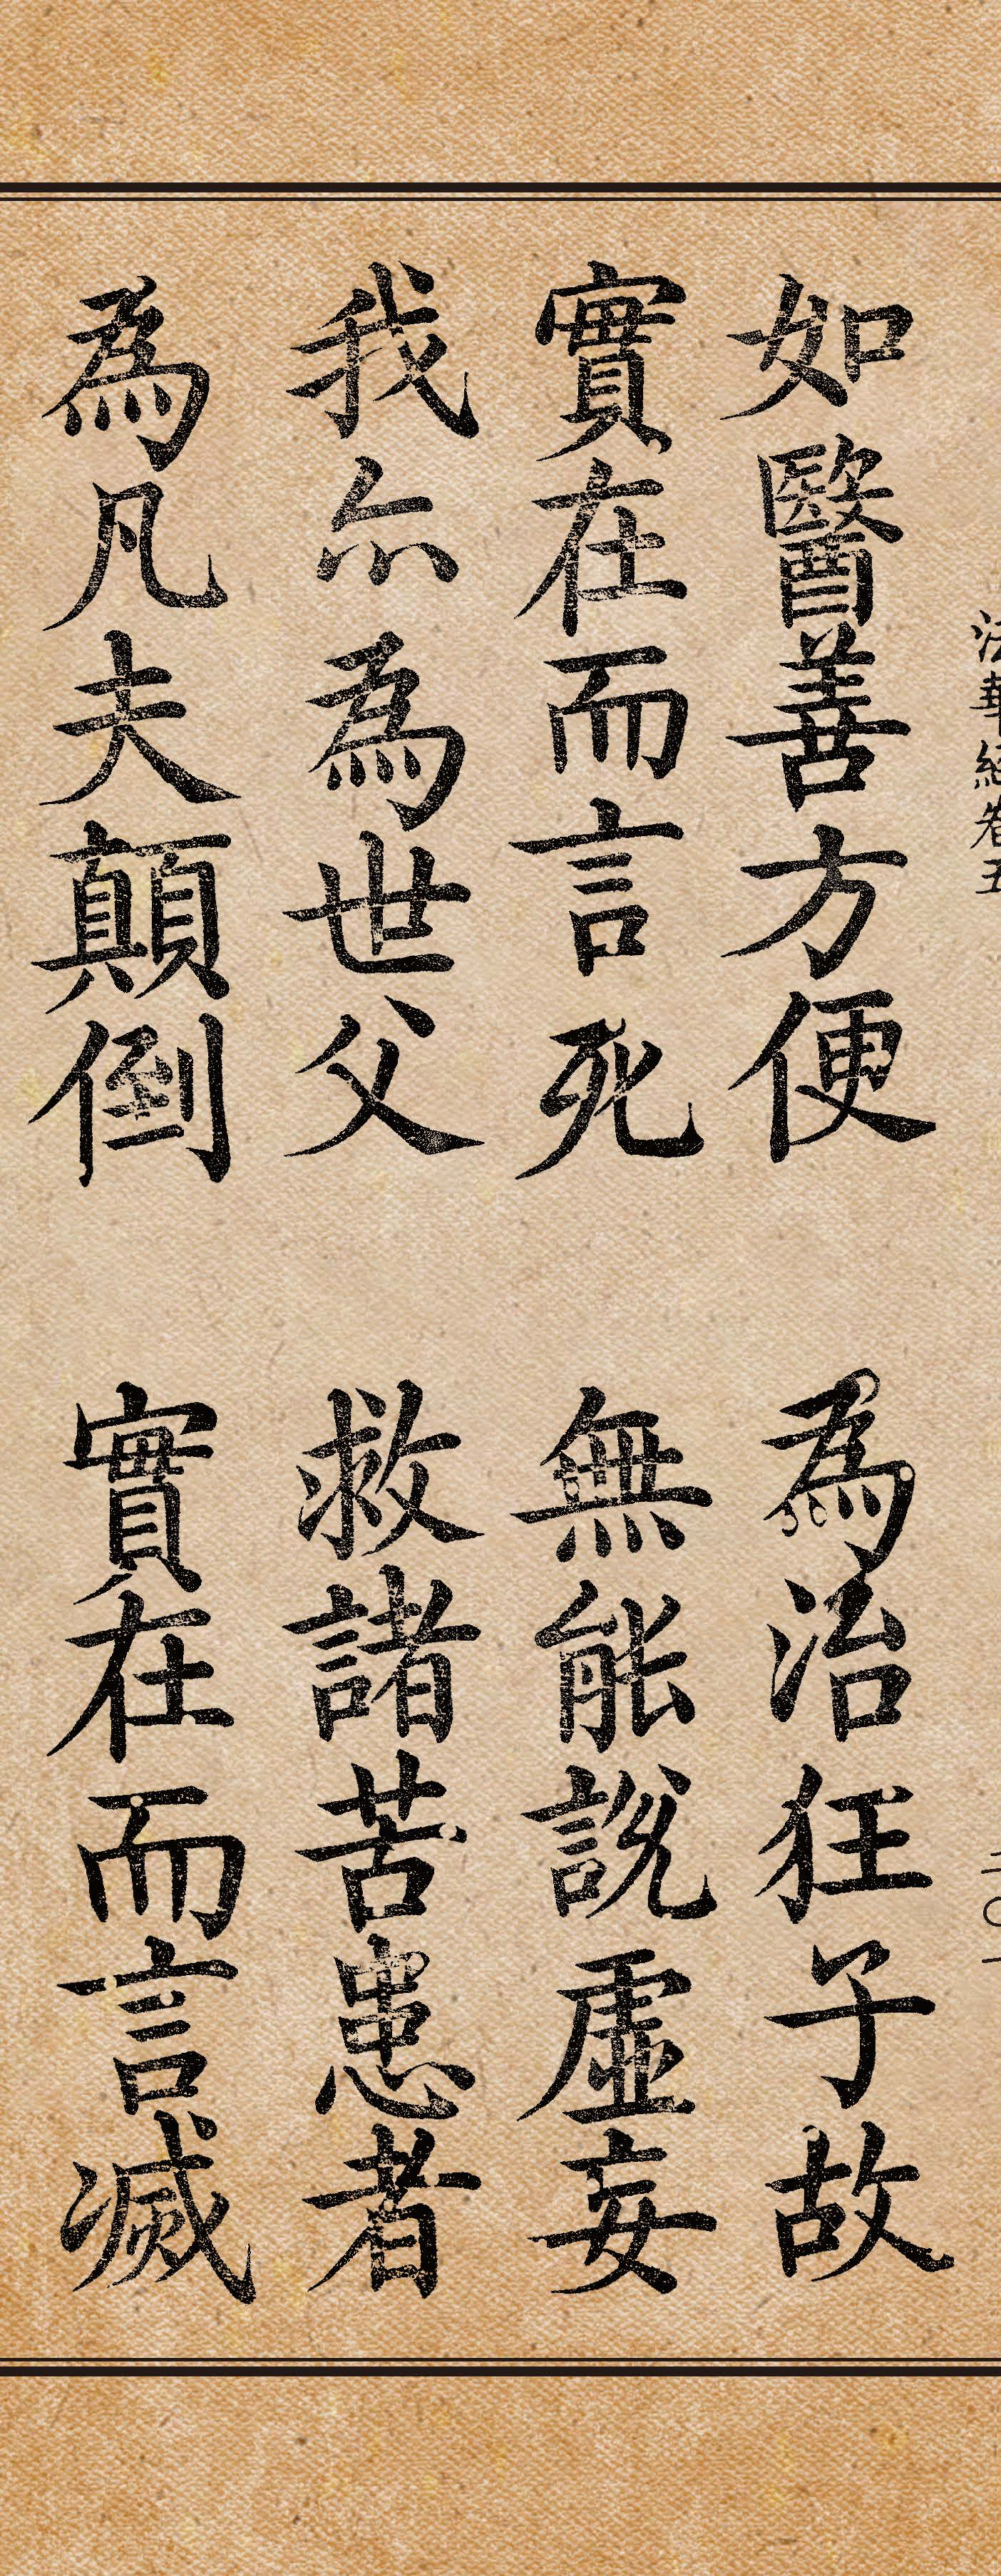 法華經卷五
如醫善方便 為治狂子故
實在而言死 無能說虛妄
我尒為世父 救諸苦患者
為凡夫顛倒 實在而言滅